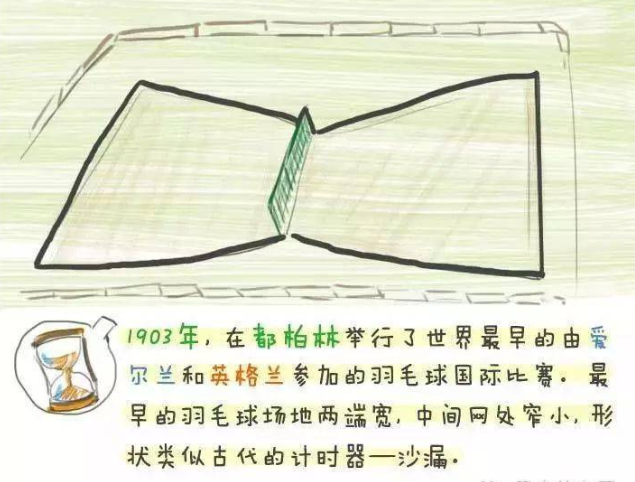 1903年，在都柏林举行了世界最早的由爱
尔兰和英格兰参加的羽毛球国际比赛。最
早的羽毛球场地两端宽，中间网处窄小，形
状类似古代的计时器—沙漏.